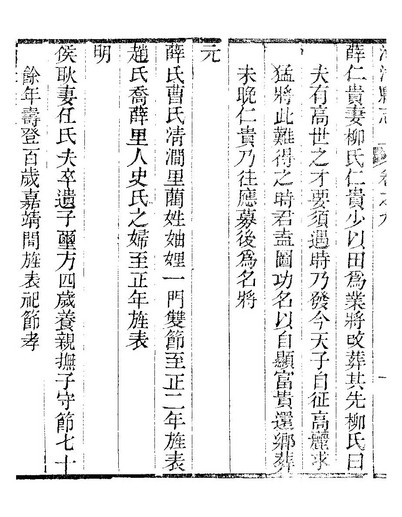 河津縣志 卷之九
薛仁貴妻柳氏仁貴少以田爲業將改葬其先柳氏曰
夫有高世之才要須遇時乃發今天子自征高麗求
猛將此難得之時君盍圖功名以自顯富貴還鄉葬
未晚仁貴乃往應募後爲名將
元
薛氏曹氏淸澗里蘭姓妯娌一門雙節至正二年旌表
趙氏喬薛里人史氏之婦至正年旌表
明
侯耿妻任氏夫卒遺子璽方四歲養親撫子守節七十
餘年壽登百歲嘉靖間旌表祀節孝